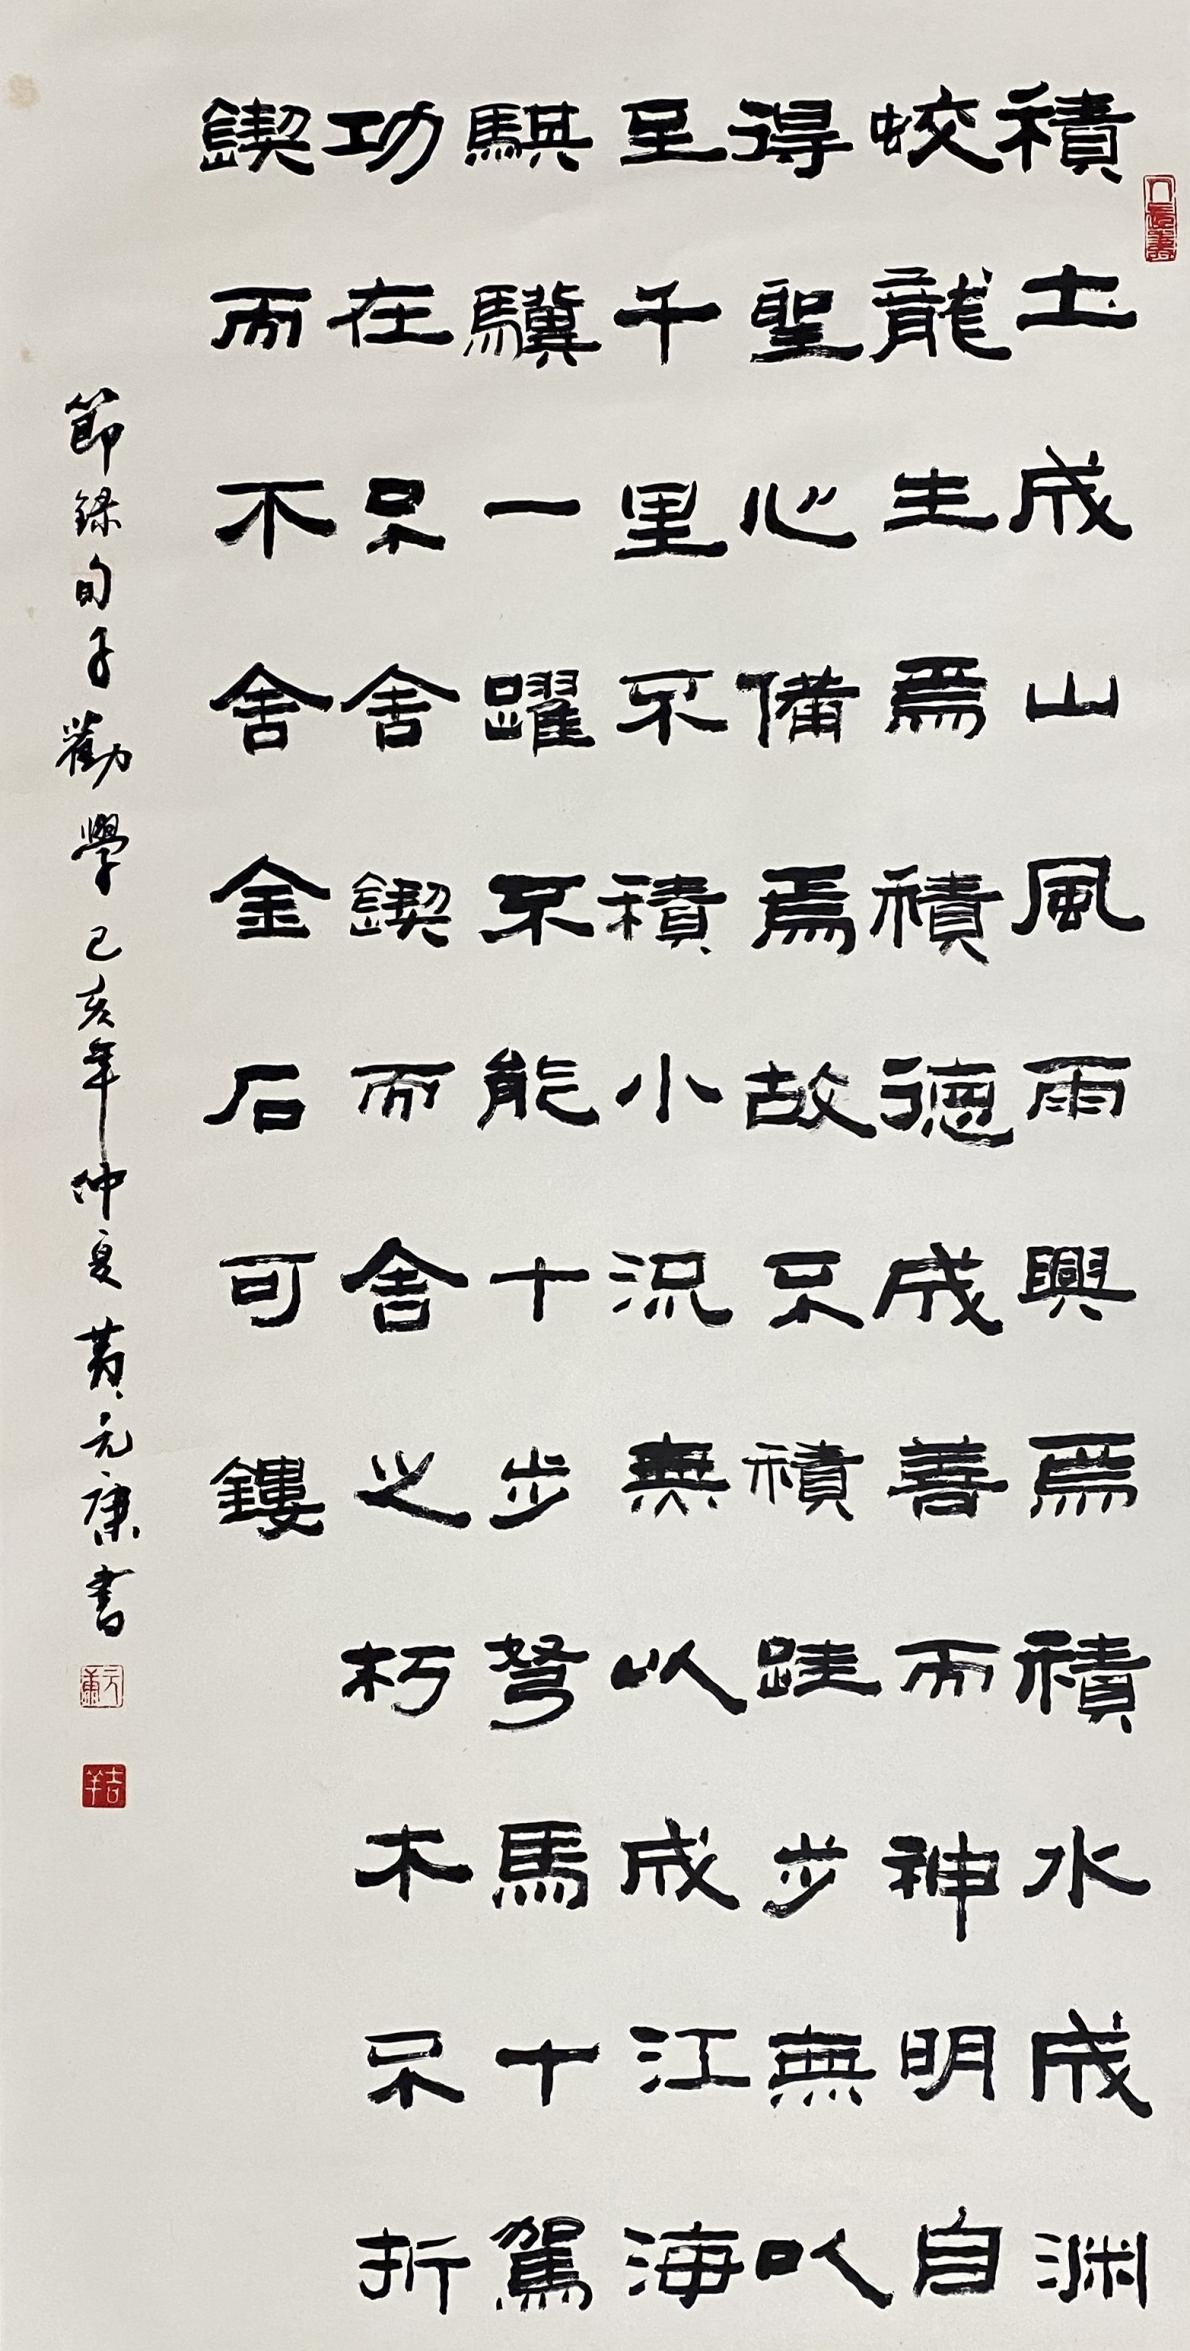 積土成山風雨興焉積水成渊
蛟龍生焉積德成善而神明自
得聖心備焉故不積跬步無以
至千里不積小況無以成江海
騏驥一躍不能十步驽馬十駕
功在不舍鍥而舍之朽木不折
鍥而不舍金石可鏤
節録旬子勸學己亥年仲夏黄元康書
元康
吉羊